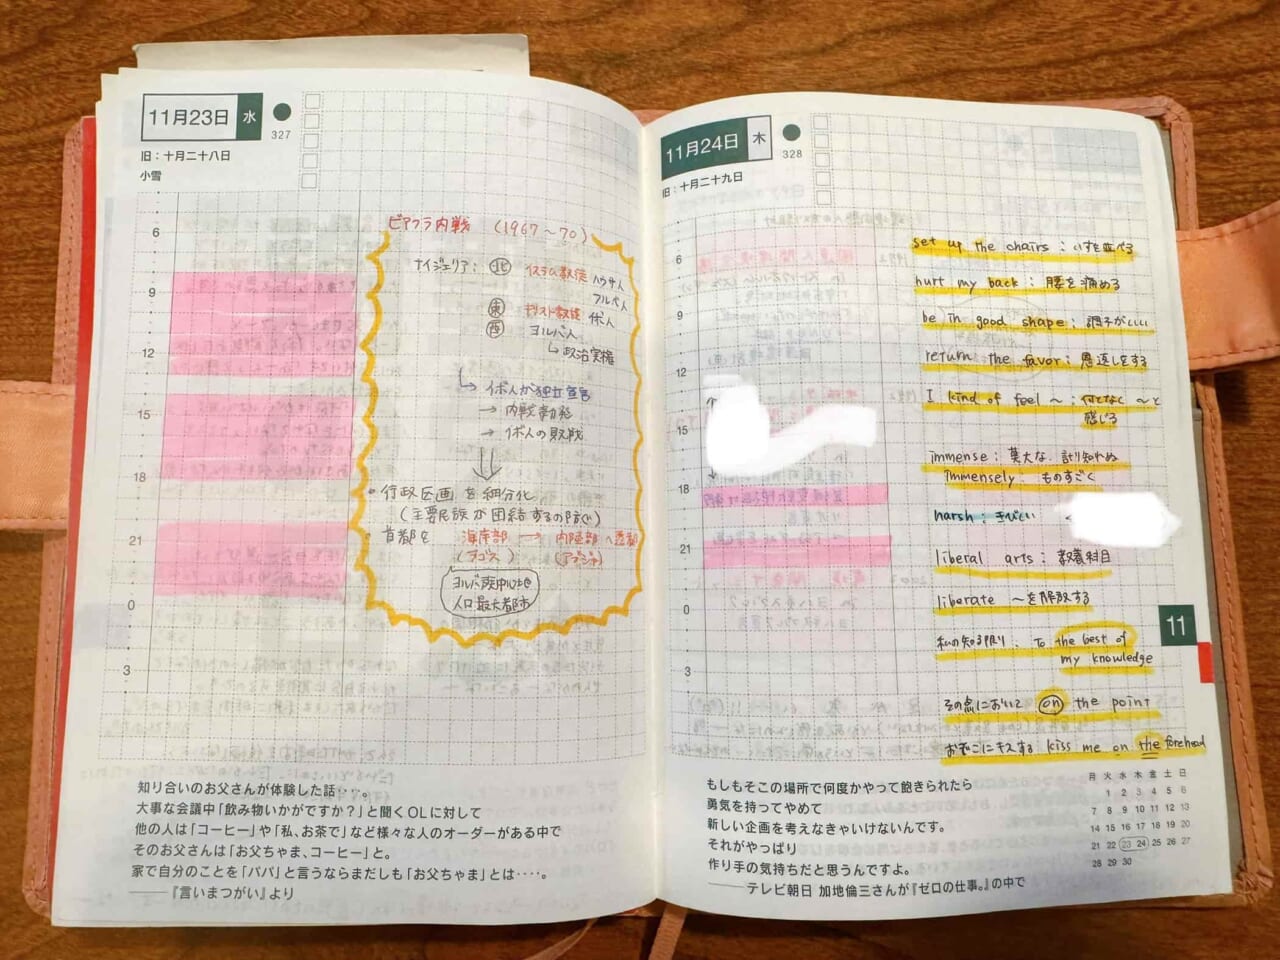 11月23日 水
327
旧：十月二十八日
小雪
6
9
12
15
18
21
0
3
ビアフラ内戦 (1967〜70)
ナイジェリア： 北 イスラム教徒 ハウサ人
フルベ人
東 キリスト教徒 イボ人
西 ヨルバ人
↳ 政治実権
↳ イボ人が独立宣言
→ 内戦勃発
→ イボ人の敗戦
• 行政区画を細分化
(主要民族が団結するの防ぐ)
• 首都を 海岸部 → 内陸部へ遷都
(ラゴス) (アブジャ)
ヨルバ族中心地
人口最大都市
知り合いのお父さんが体験した話‥‥。
大事な会議中「飲み物いかがですか？」と聞くOLに対して
他の人は「コーヒー」や「私、お茶で」など様々な人のオーダーがある中で
そのお父さんは「お父ちゃま、コーヒー」と。
家で自分のことを「パパ」と言うならまだしも「お父ちゃま」とは‥‥。
――『言いまつがい』より
11月24日 木
328
旧：十月二十九日
6
9
12
15
18
21
0
3
set up the chairs : いすを並べる
hurt my back : 腰を痛める
be in good shape : 調子がいい
return the favor : 恩返しをする
I kind of feel ~ : 何となく ~と
感じる
immense : 莫大な 計り知れぬ
immensely ものすごく
harsh : きびしい
liberal arts : 教養科目
liberate ~を解放する
私の知る限り : To the best of
my knowledge
その点において on the point
おでこにキスする kiss me on the forehead
11
もしもそこの場所で何度かやって飽きられたら
勇気を持ってやめて
新しい企画を考えなきゃいけないんです。
それがやっぱり
作り手の気持ちだと思うんですよ。
――テレビ朝日 加地倫三さんが『ゼロの仕事。』の中で
月 火 水 木 金 土 日
1 2 3 4 5 6
7 8 9 10 11 12 13
14 15 16 17 18 19 20
21 22 23 24 25 26 27
28 29 30